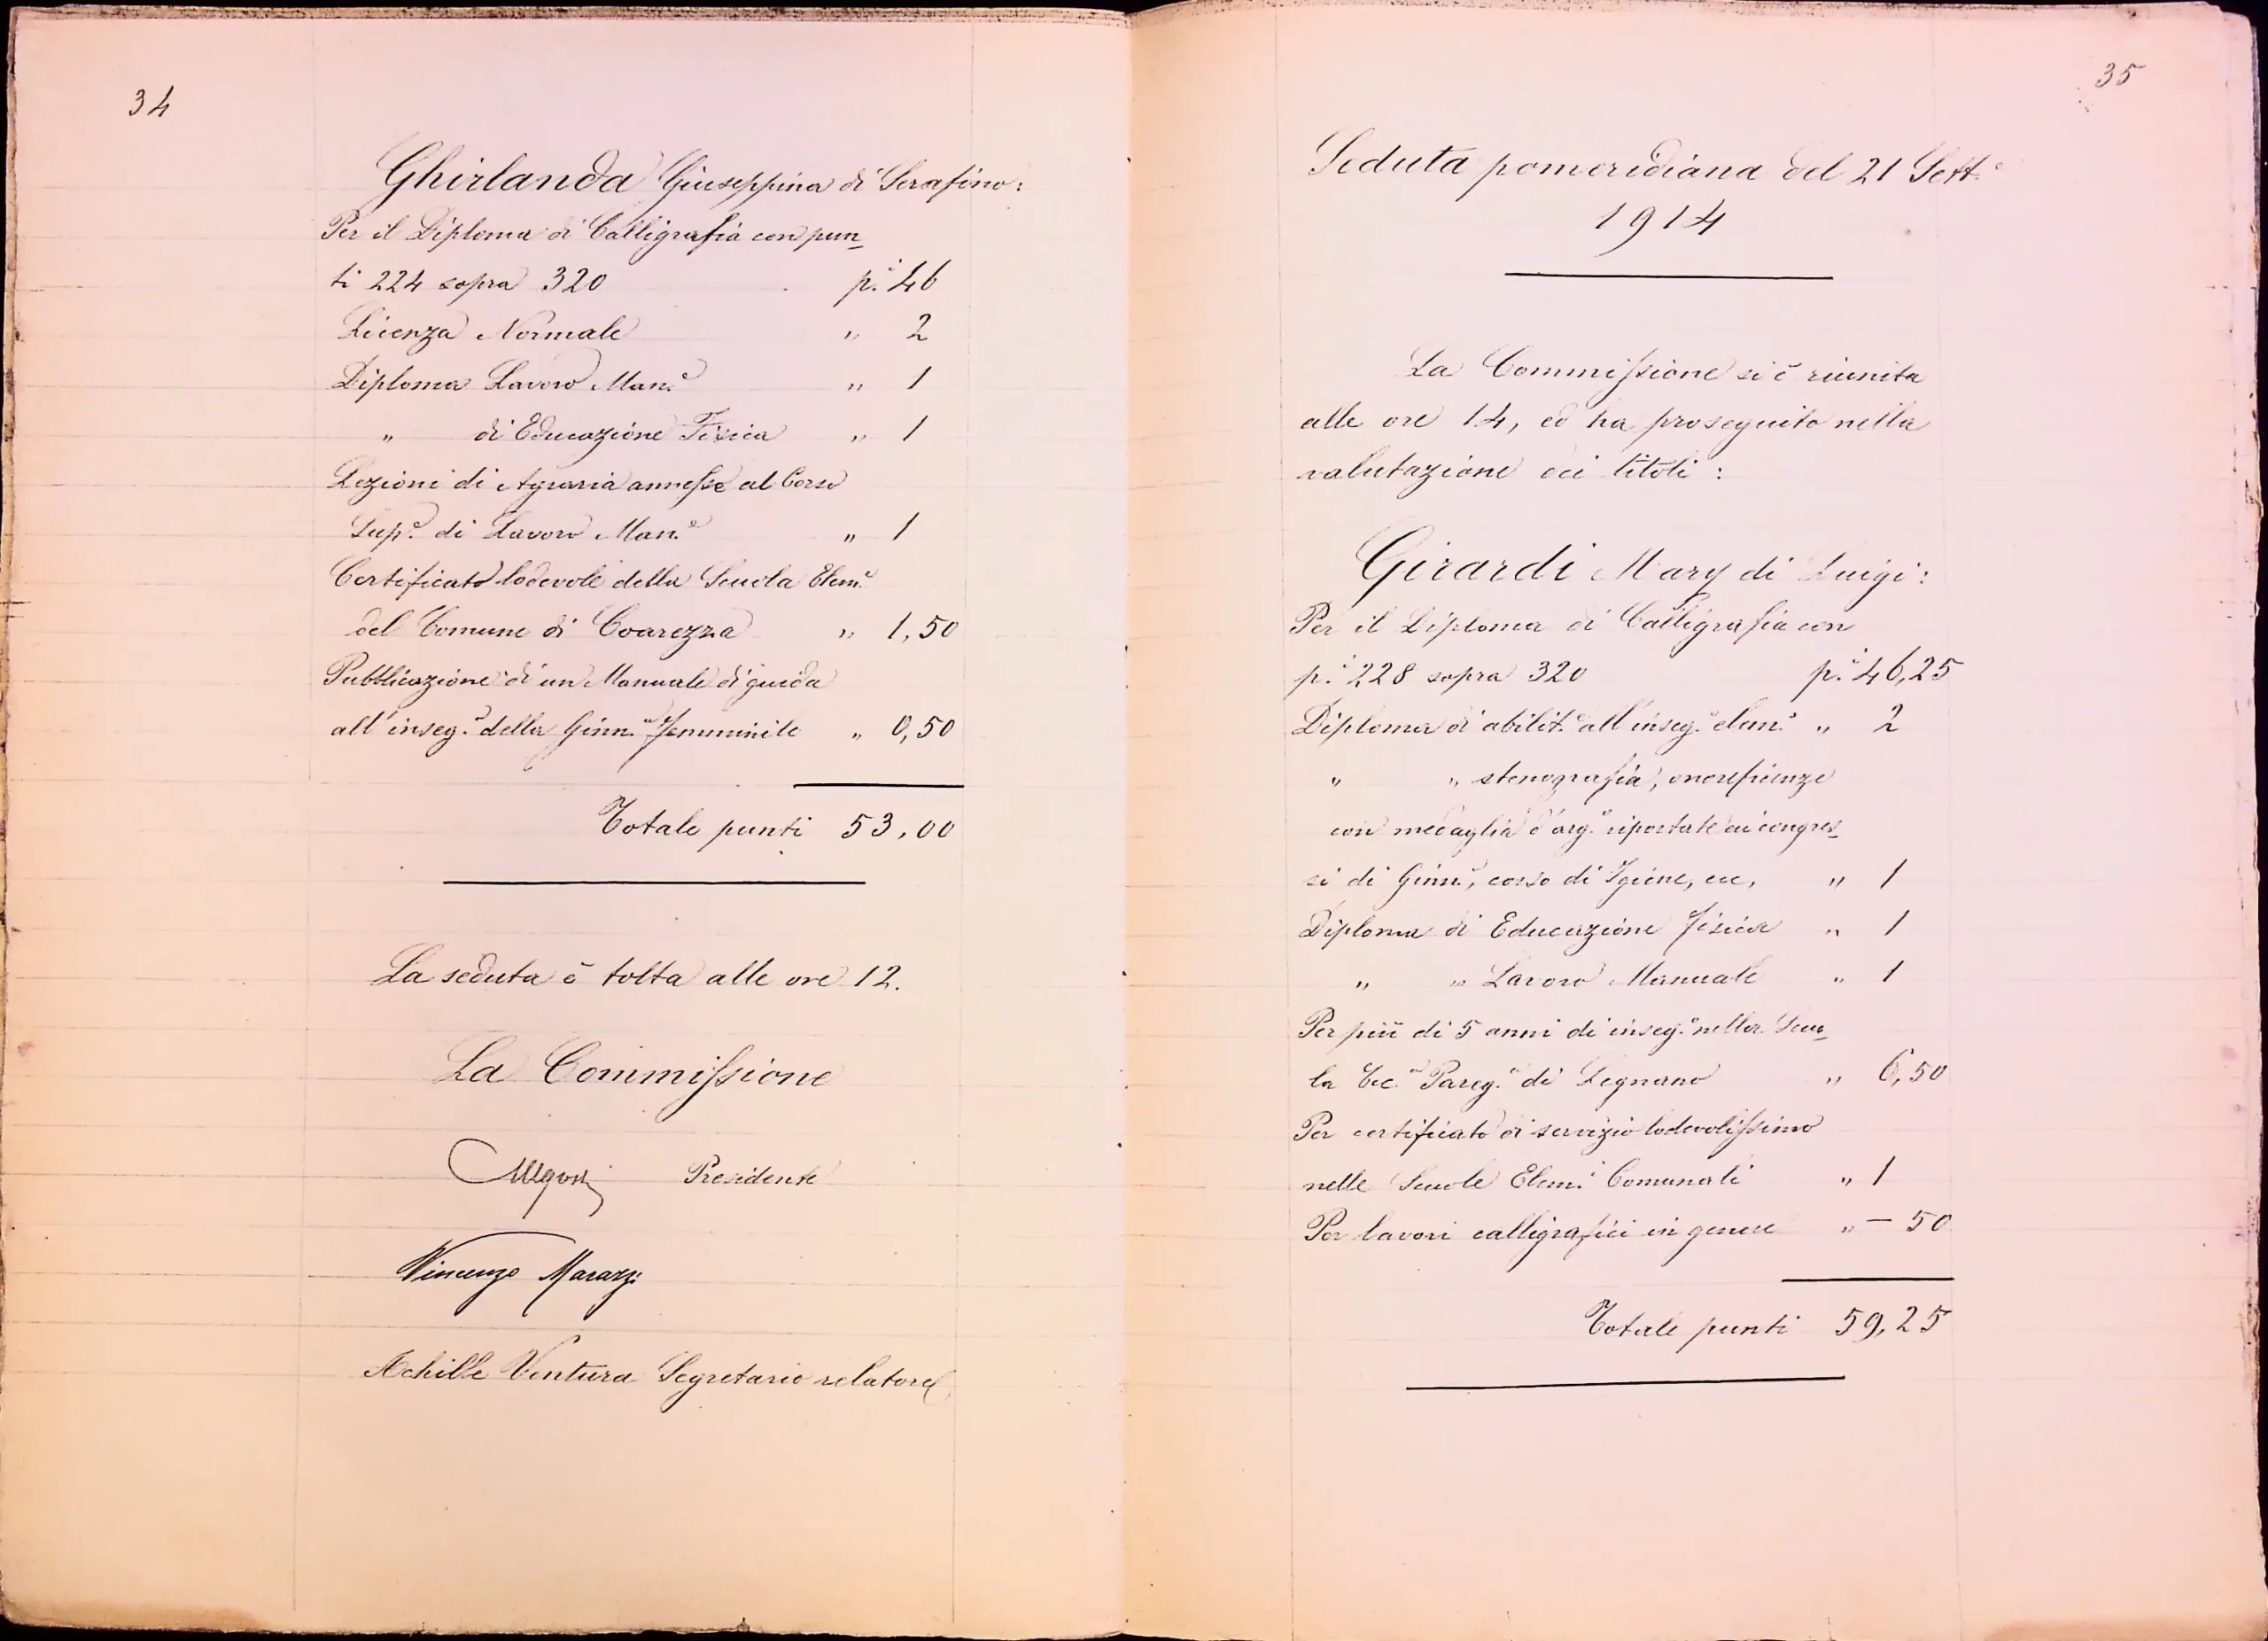 34
Ghirlanda Giuseppina di Serafino:
Per il Diploma di Calligrafia con pun_
ti 224 sopra 320 p.i 46
Licenza Normale " 2
Diploma Lavoro Man.e " 1
" di Educazione Fisica " 1
Lezioni di Agraria annesse al Corso
Sup.e di Lavoro Man.e " 1
Certificato lodevole della Scuola Elem.e
del Comune di Coarezza " 1,50
Pubblicazione di un Manuale di guida
all'inseg.o della Ginn.ca femminile " 0,50
Totale punti 53,00
La seduta è tolta alle ore 12.
La Commissione
Presidente
Vincenzo Marazzi
Achille Ventura Segretario relatore
35
Seduta pomeridiana del 21 Sett.e
1914
La Commissione si è riunita
alle ore 14, ed ha proseguito nella
valutazione dei titoli:
Girardi Mary di Luigi:
Per il Diploma di Calligrafia con
p.i 228 sopra 320 p.i 46,25
Diploma di abilit.e all'inseg.o elem.e " 2
" " stenografia, onorificenze
con medaglia d'arg.o riportate ai congres_
si di Ginn.a, corso di Igiene, ecc, " 1
Diploma di Educazione fisica " 1
" " Lavoro Manuale " 1
Per più di 5 anni di inseg.o nella Scuo_
la Tec.a Pareg.a di Legnano " 6,50
Per certificato di servizio lodevolissimo
nelle Scuole Elem.i Comunali " 1
Per lavori calligrafici in genere " — 50
Totale punti 59,25